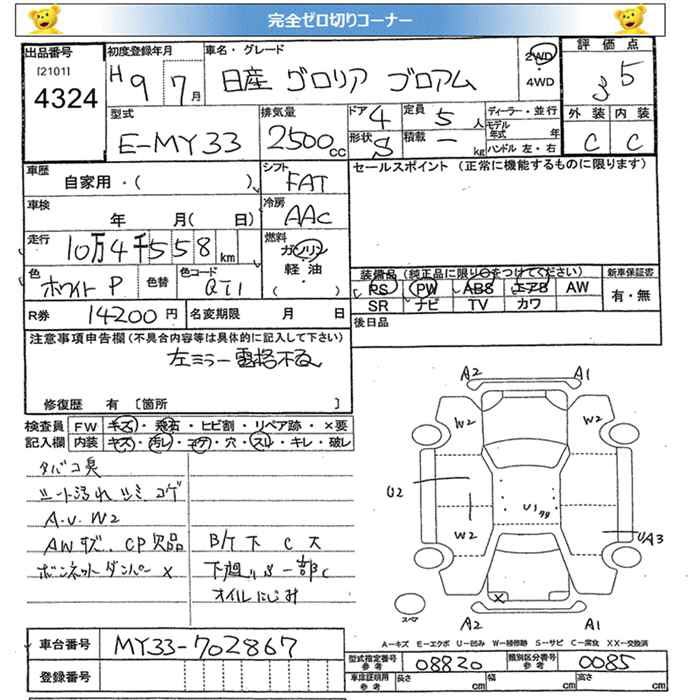 完全ゼロ切りコーナー
出品番号
[2101]
4324
初度登録年月
H9 7月
車名・グレード
日産 グロリア ブロアム
2WD
・4WD
評価点
3.5
型式
E-MY33
排気量
2500cc
ドア 4
形状 S
定員 5人
積載 ー kg
ディーラー・並行
モデル年式 年
ハンドル 左・右
外装 内装
C C
車歴
自家用・( )
シフト
FAT
セールスポイント (正常に機能するものに限ります)
車検
年 月( 日)
冷房
AAC
走行
10万4千558km
燃料
ガソリン
軽油
( ・ )
色
ホワイトP
色替
色コード
QT1
装備品 (純正品に限り○をつけてください)
PS PW ABS エアB AW
SR ナビ TV カワ
新車保証書
有・無
R券 14200円
名変期限 月 日
後日品
注意事項申告欄 (不具合内容等は具体的に記入して下さい)
左ミラー電格不良
修復歴 有 [箇所 ]
検査員 FW キズ・飛石・ヒビ割・リペア跡・×要
記入欄 内装 キズ・汚レ・コゲ・穴・スレ・キレ・破レ
タバコ臭
シート汚れ シミ コゲ
A.U.W2
AWキズ. CP欠品
ボンネットダンパー×
B/T下 C大
下廻りS一部C
オイルにじみ
A2 A1
W2 W2
U2
U1
W2
UA3
X
スペア
A2 A1
車台番号 MY33-702867
登録番号
A-キズ E-エクボ U-凹み W-補修跡 S-サビ C-腐食 XX-交換済
型式指定番号
参考
08820
類別区分番号
参考
0085
車庫証明用
参考
長さ cm 幅 cm 高さ cm